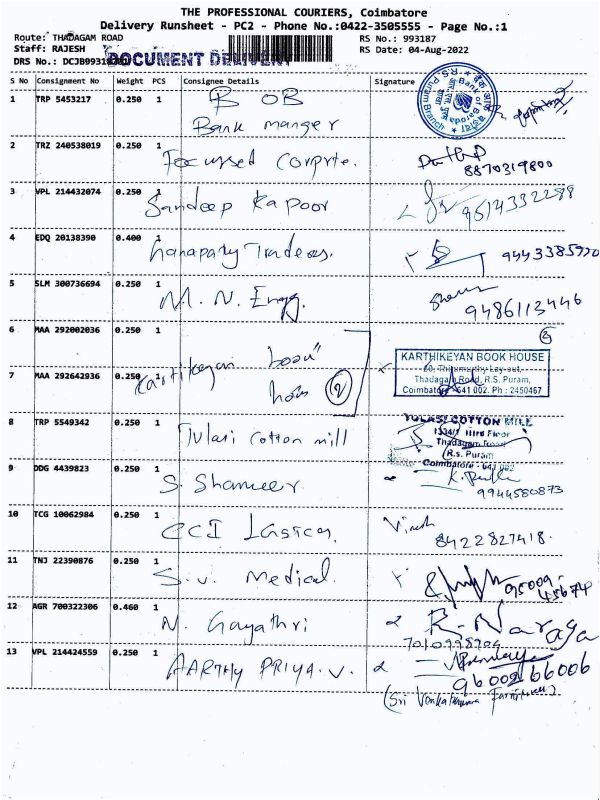 THE PROFESSIONAL COURIERS, Coimbatore
Delivery Runsheet - PC2 - Phone No.:0422-3505555 - Page No.:1
Route: THADAGAM ROAD
RS No.: 993187
Staff: RAJESH
RS Date: 04-Aug-2022
DOCUMENT DELIVERY
DRS No.: DCJB993187
S No Consignment No Weight PCS Consignee Details Signature
1 TRP 5453217 0.250 1 B OB
Bank manger
R.S. Puram Branch
2 TRZ 240538019 0.250 1 Focussed Corprte.
8870319800
3 VPL 214432074 0.250 1 Sandeep Kapoor
9514332298
4 EDQ 20138390 0.400 1 Ganapathy Traders.
9443385970
5 SLM 300736694 0.250 1 M. N. Engg.
9486113446
6 MAA 292002036 0.250 1
7 MAA 292642936 0.250 1 Kartikeyan book
hous (2)
KARTHIKEYAN BOOK HOUSE
60, Thirumurthy Lay-out,
Thadagam Road, R.S. Puram,
Coimbatore - 641 002. Ph : 2450467
8 TRP 5549342 0.250 1 Tulasi Cotton mill
TULASI COTTON MILL
Thadagam Road
R.s. Puram
Coimbatore - 641 002
9 DDG 4439823 0.250 1 S. Shameer.
9944580873
10 TCG 10062984 0.250 1 CCI Lasica
Vinoth
8422827418.
11 TNJ 22390876 0.250 1 S.V. Medical.
95009-45674
12 AGR 700322306 0.460 1 N. Gayathri
R. Naraya
7010998904
13 VPL 214424559 0.250 1 AARTHY PRIYA. V.
9600266006
(Sri Venkateswara Furniture)